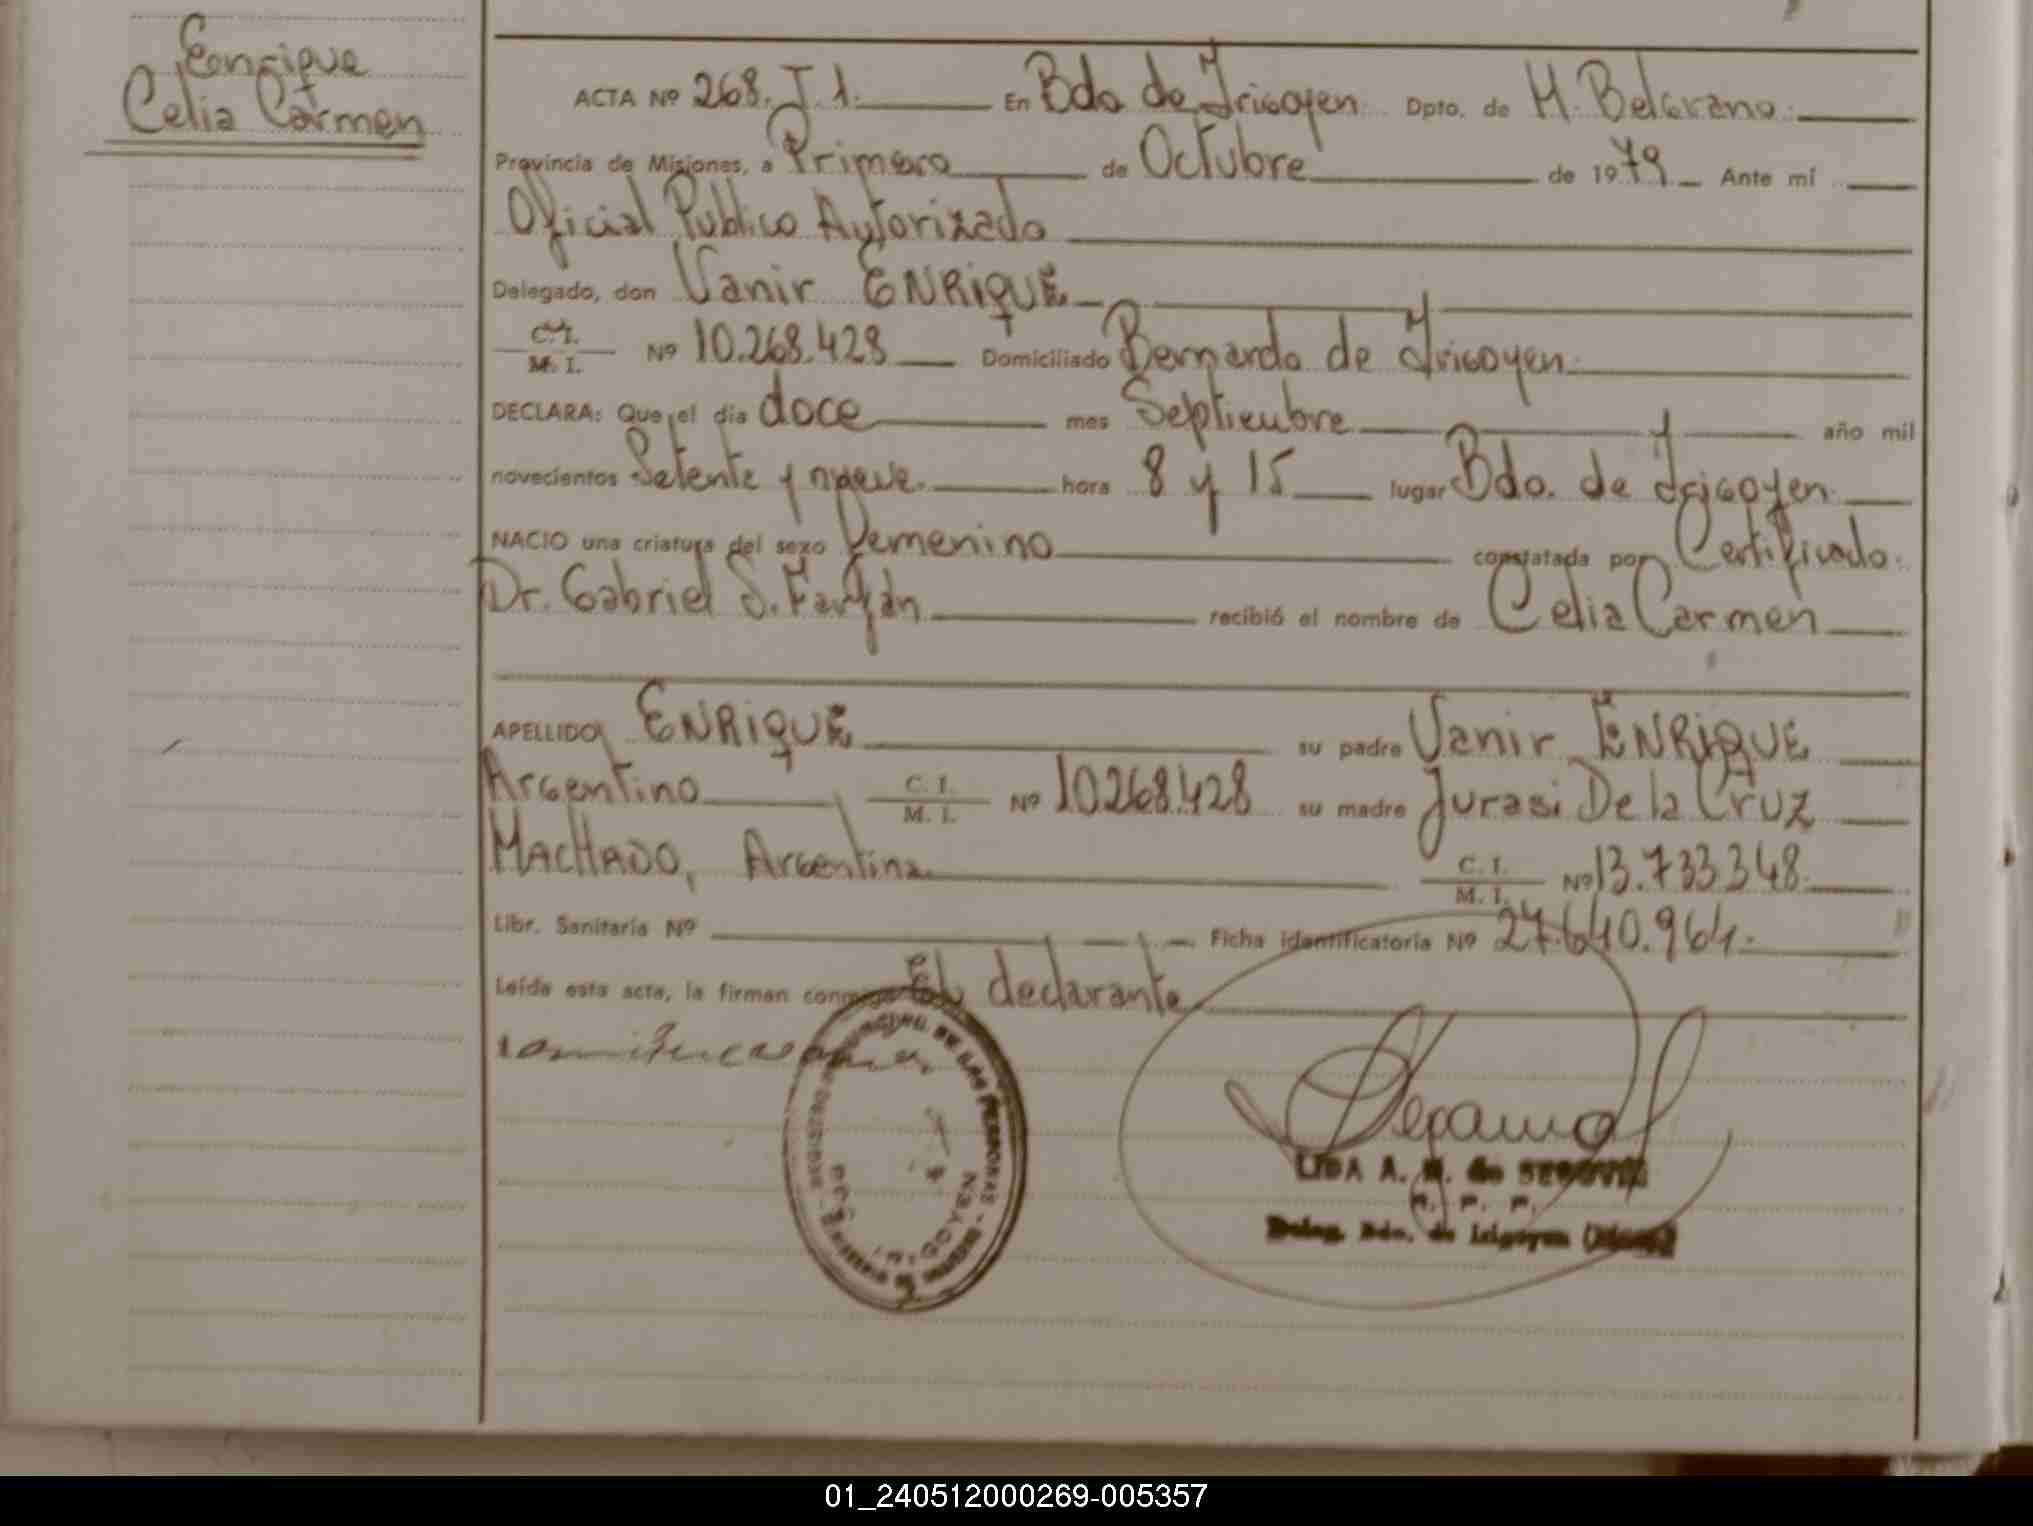 Enrique
Celia Carmen
ACTA Nº 268. T. 1. En Bdo de Irigoyen Dpto. de M. Belgrano.
Provincia de Misiones, a Primero de Octubre de 1979 Ante mí
Oficial Publico Autorizado
Delegado, don Vanir ENRIQUE
C. I.
M. I. Nº 10.268.428 Domiciliado Bernardo de Irigoyen.
DECLARA: Que el día doce mes Septiembre año mil
novecientos Setenta y nueve. hora 8 y 15 lugar Bdo. de Irigoyen.
NACIO una criatura del sexo femenino constatada por Certificado.
Dr. Gabriel S. Farfán recibió el nombre de Celia Carmen
APELLIDO ENRIQUE su padre Vanir ENRIQUE
Argentino C. I. M. I. Nº 10.268.428 su madre Jurasi De la Cruz
MACHADO, Argentina C. I. M. I. Nº 13.733348.
Libr. Sanitaria Nº Ficha identificatoria Nº 27.640.964.
Leída esta acta, la firman conmigo El declarante
LIDA A. de SEGOVIA
Deleg. Bdo. de Irigoyen
01_240512000269-005357